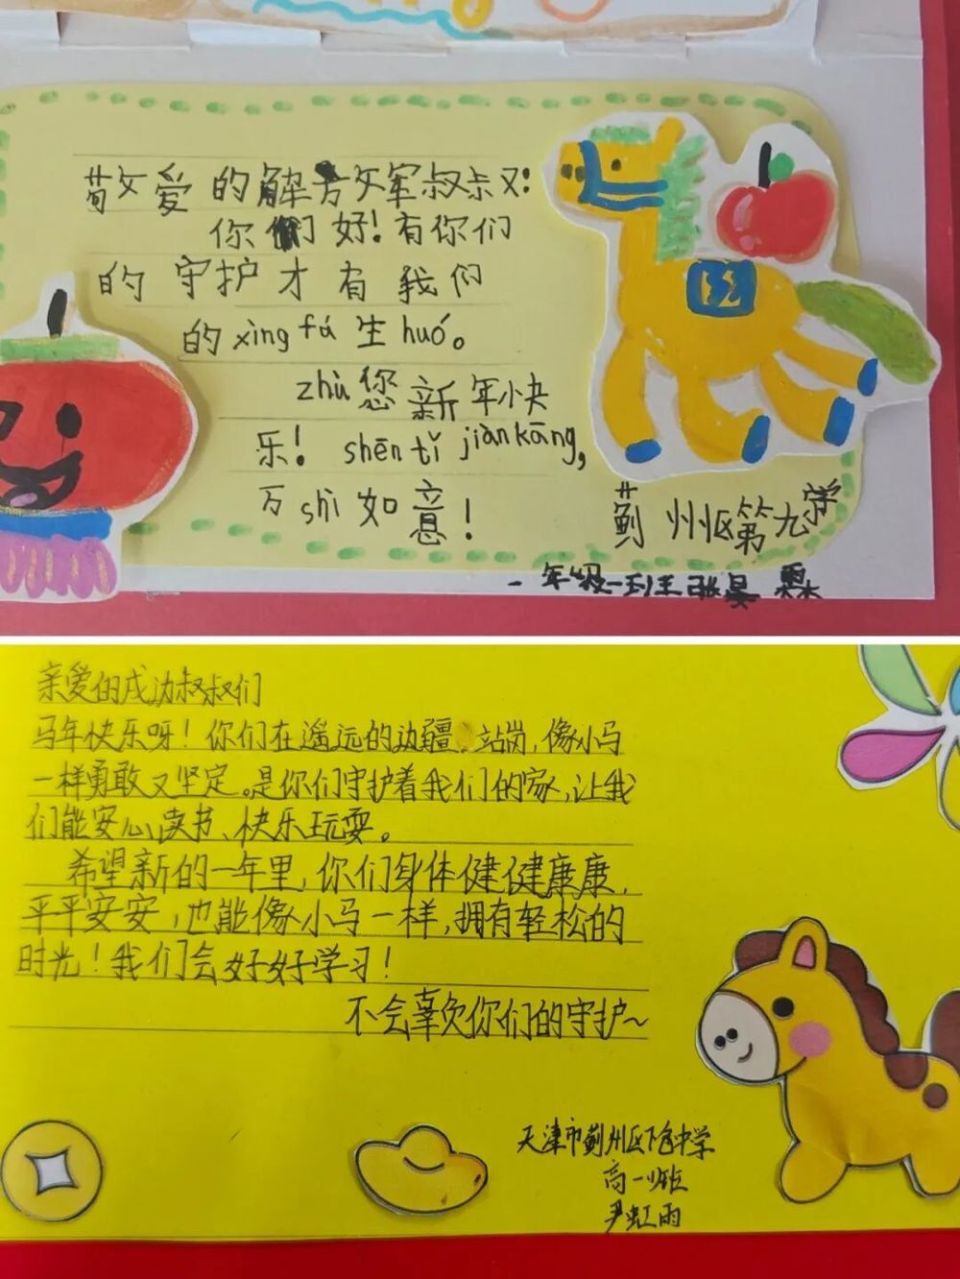 敬爱的解放军叔叔:
你们好!有你们
的守护才有我们
的xìng fú生huó。
zhù您新年快
乐! shēn tǐ jiàn kāng,
万shì如意!
蓟州区第九学
一年级一班王张昊霖
亲爱的戍边叔叔们
马年快乐呀!你们在遥远的边疆站岗,像小马
一样勇敢又坚定。是你们守护着我们的家,让我
们能安心读书、快乐玩耍。
希望新的一年里,你们身体健健康康,
平平安安,也能像小马一样,拥有轻松的
时光!我们会好好学习!
不会辜负你们的守护~
天津市蓟州区下仓中学
高一班
尹虹雨